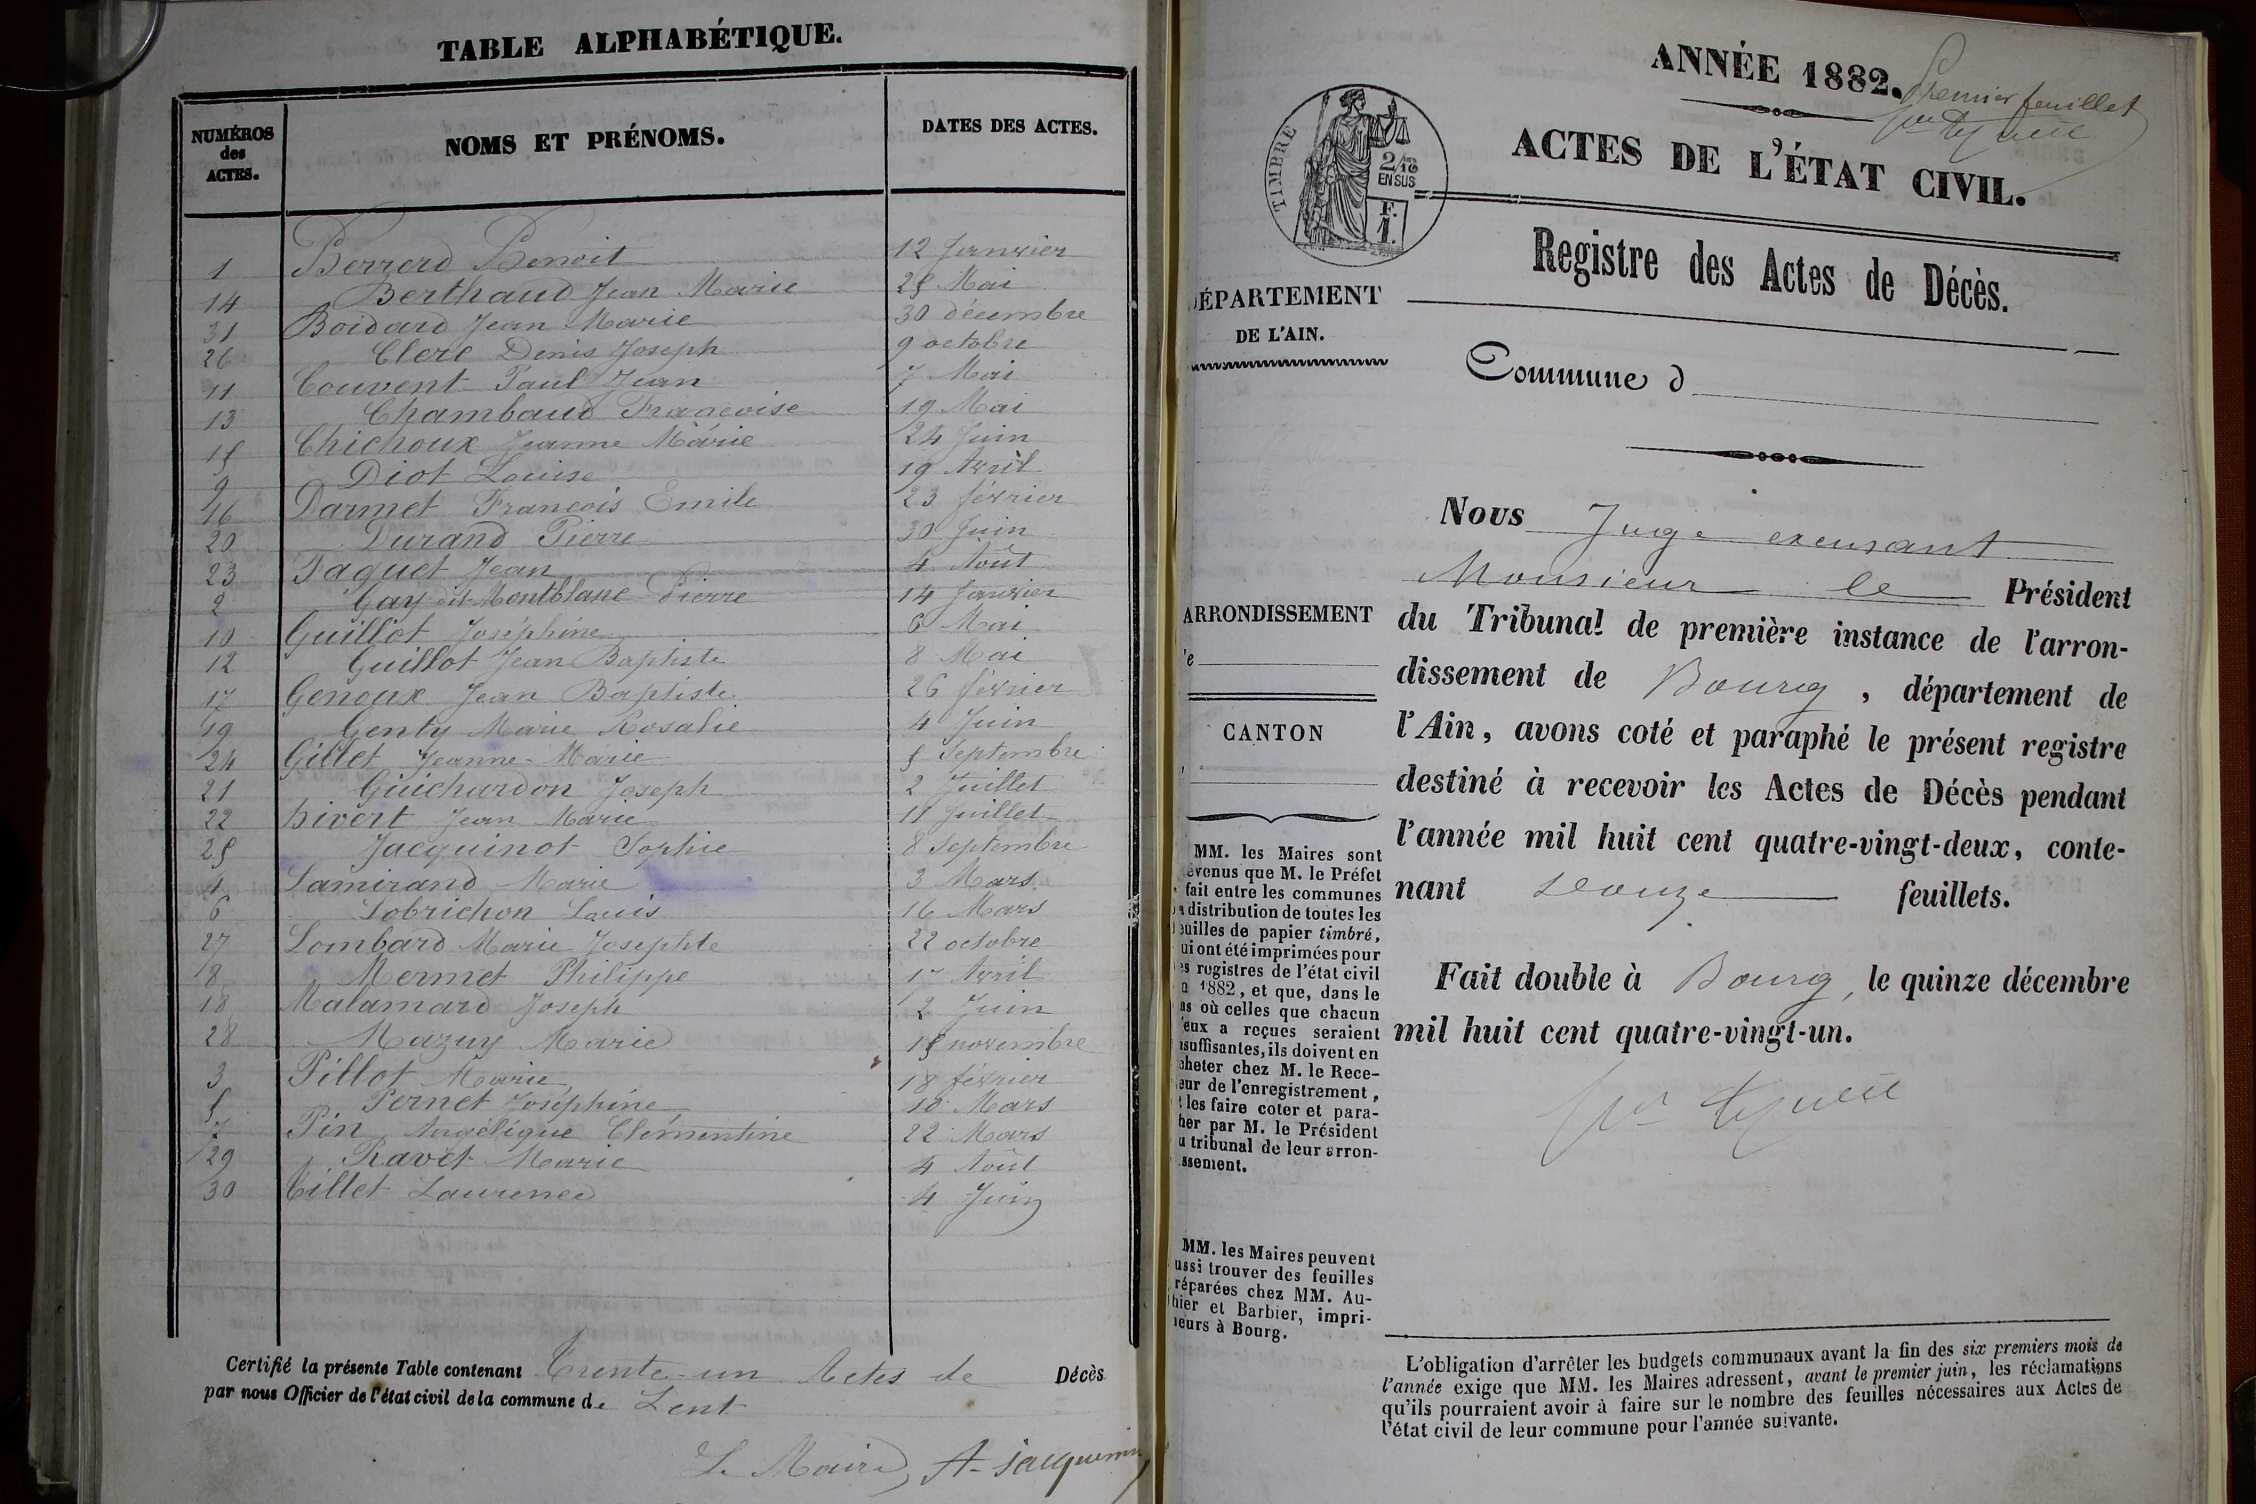 TABLE ALPHABÉTIQUE.
NUMÉROS des ACTES. NOMS ET PRÉNOMS. DATES DES ACTES.
1 Berrerd Benoit 12 Janvier
14 Berthaud Jean Marie 25 Mai
31 Boidard Jean Marie 30 décembre
26 Clerc Denis Joseph 9 octobre
11 Couvent Paul Jean 7 Mai
13 Chambaud Françoise 19 Mai
15 Chichoux Jeanne Marie 24 Juin
9 Diot Louise 19 Avril
16 Darmet François Emile 23 février
20 Durand Pierre 30 Juin
23 Faguet Jean 4 Août
2 Gay dit Montblanc Pierre 14 Janvier
10 Guillot Joséphine 6 Mai
12 Guillot Jean Baptiste 8 Mai
17 Genoux Jean Baptiste 26 février
19 Genty Marie Rosalie 4 Juin
24 Gillet Jeanne-Marie 5 Septembre
21 Guichardon Joseph 2 Juillet
22 hivert Jean Marie 11 Juillet
25 Jacquinot Sophie 8 Septembre
4 Lamirand Marie 3 Mars
6 Lobrichon Louis 16 Mars
27 Lombard Marie Josephte 22 octobre
8 Mermet Philippe Avril
18 Malamard Joseph 2 Juin
28 Mazuy Marie 15 novembre
3 Pillot Marie 18 février
5 Pernet Joséphine 10 Mars
7 Pin Angélique Clémentine 22 Mars
29 Ravet Marie 4 Août
30 Tillet Laurence 4 Juin
Certifié la présente Table contenant Trente-un Actes de Décès
par nous Officier de l'état civil de la commune de Lent
Le Maire, A. Jacquemin
ANNÉE 1882.
Premier feuillet
ACTES DE L'ÉTAT CIVIL.
TIMBRE
2/10 EN SUS
F. 1.
Registre des Actes de Décès.
DÉPARTEMENT
DE L'AIN.
Commune d
ARRONDISSEMENT
CANTON
Nous Juge excusant
Monsieur le Président
du Tribunal de première instance de l'arron-
dissement de Bourg, département de
l'Ain, avons coté et paraphé le présent registre
destiné à recevoir les Actes de Décès pendant
l'année mil huit cent quatre-vingt-deux, conte-
nant douze feuillets.
Fait double à Bourg, le quinze décembre
mil huit cent quatre-vingt-un.
MM. les Maires sont
évenus que M. le Préfet
fait entre les communes
a distribution de toutes les
euilles de papier timbré,
ui ont été imprimées pour
es registres de l'état civil
n 1882, et que, dans le
as où celles que chacun
'eux a reçues seraient
nsuffisantes, ils doivent en
cheter chez M. le Rece-
eur de l'enregistrement,
t les faire coter et para-
her par M. le Président
u tribunal de leur arron-
ssement.
MM. les Maires peuvent
ussi trouver des feuilles
réparées chez MM. Au-
hier et Barbier, impri-
eurs à Bourg.
L'obligation d'arrêter les budgets communaux avant la fin des six premiers mois de
l'année exige que MM. les Maires adressent, avant le premier juin, les réclamations
qu'ils pourraient avoir à faire sur le nombre des feuilles nécessaires aux Actes de
l'état civil de leur commune pour l'année suivante.